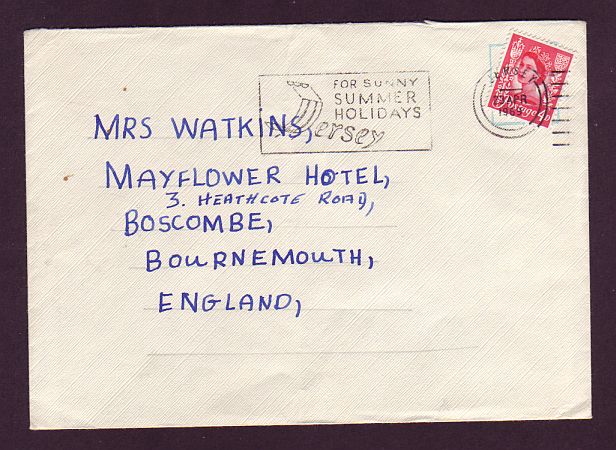 FOR SUNNY
SUMMER
HOLIDAYS
Jersey
JERSEY
APR
1969
MRS WATKINS,
MAYFLOWER HOTEL,
3. HEATHCOTE ROAD,
BOSCOMBE,
BOURNEMOUTH,
ENGLAND,